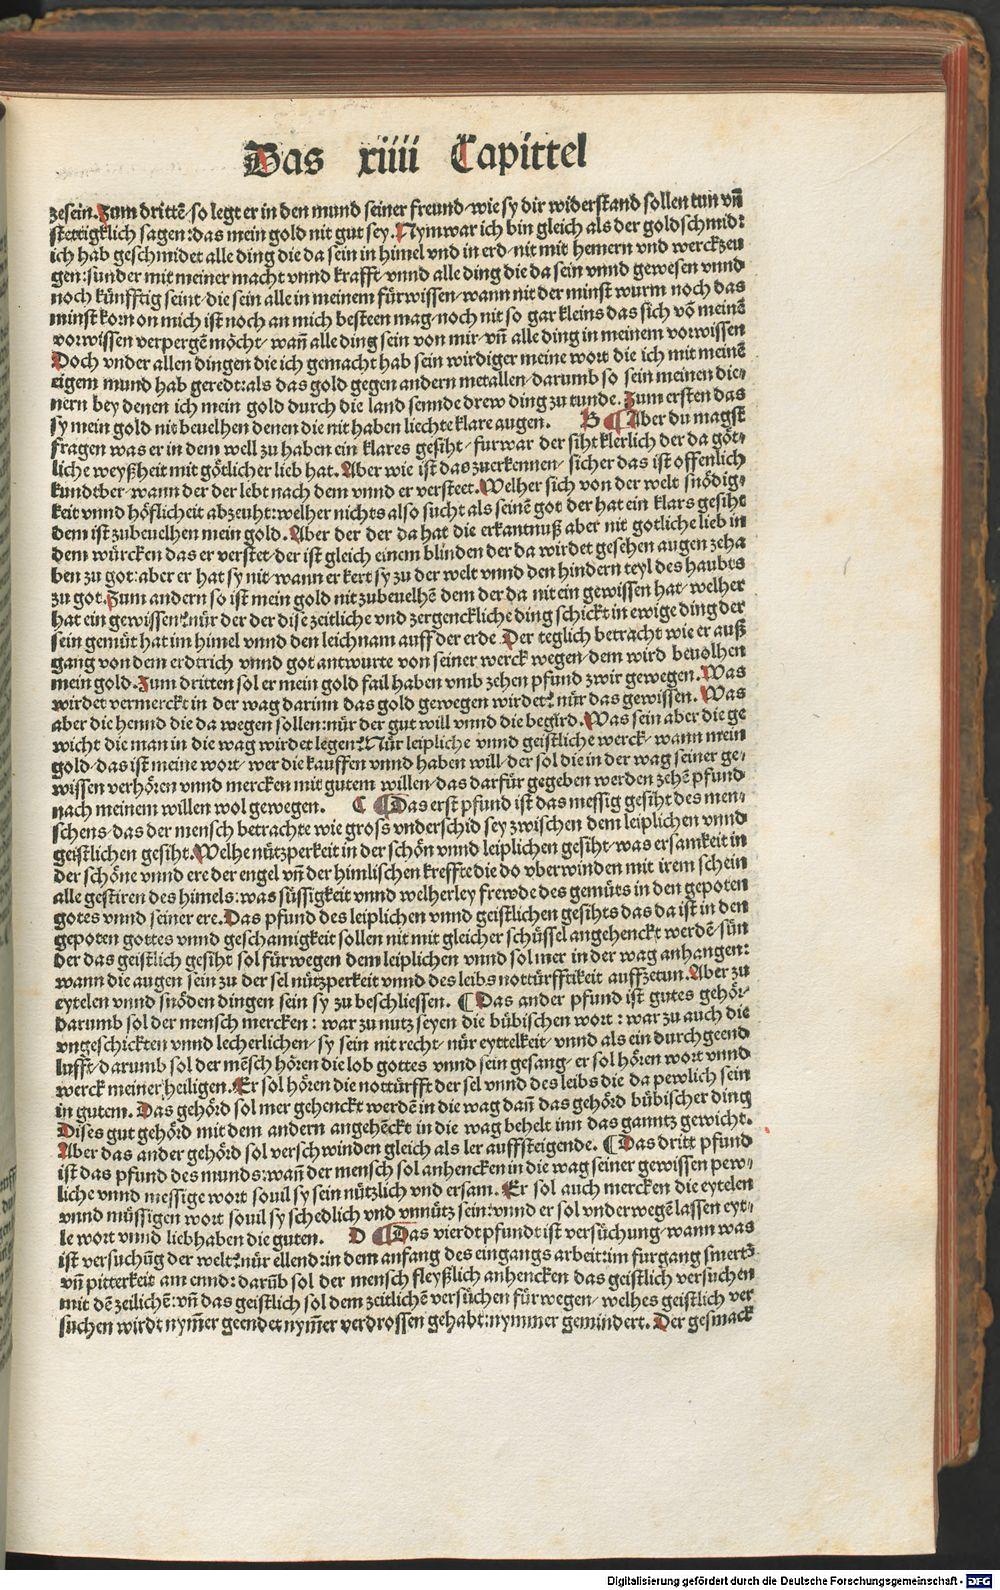 Das xiiii Capittel
zesein. Zum drittē so legt er in den mund seiner freund wie sy dir widerstand sollen tun vn̄
stettigklich sagen: das mein gold nit gut sey. Nym war ich bin gleich als der goldschmid:
ich hab geschmidet alle ding die da sein in himel vnd in erd nit mit hemern vnd werckzeu
gen: sunder mit meiner macht vnnd krafft vnnd alle ding die da sein vnnd gewesen vnnd
noch künfftig seint die sein alle in meinem fürwissen wann nit der minst wurm noch das
minst korn on mich ist noch an mich besteen mag noch nit so gar kleins das sich vō meinē
vorwissen verpergē möcht wan̄ alle ding sein von mir vn̄ alle ding in meinem vorwissen
Doch vnder allen dingen die ich gemacht hab sein wirdiger meine wort die ich mit meinē
eigem mund hab geredt: als das gold gegen andern metallen darumb so sein meinen die⸗
nern bey denen ich mein gold durch die land sennde drew ding zu tunde. Zum ersten das
sy mein gold nit beuelhen denen die nit haben liechte klare augen. B ¶ Aber du magst
fragen was er in dem well zu haben ein klares gesiht furwar der siht klerlich der da göt⸗
liche weyßheit mit götlicher lieb hat. Aber wie ist das zuerkennen sicher das ist offenlich
kundtber wann der der lebt nach dem vnnd er versteet. Welher sich von der welt snödig⸗
keit vnnd höflicheit abzeuht: welher nichts also sucht als seinē got der hat ein klars gesiht
dem ist zubeuelhen mein gold. Aber der der da hat die erkantnuß aber nit gotliche lieb in
dem würcken das er verstet der ist gleich einem blinden der da wirdet gesehen augen zeha
ben zu got: aber er hat sy nit wann er kert sy zu der welt vnnd den hindern teyl des haubts
zu got. Zum andern so ist mein gold nit zubeuelhē dem der da nit ein gewissen hat welher
hat ein gewissen? nür der der dise zeitliche vnd zergenckliche ding schickt in ewige ding der
sein gemüt hat im himel vnnd den leichnam auff der erde. Der teglich betracht wie er auß
gang von dem erdtrich vnnd got antwurte von seiner werck wegen dem wird beuolhen
mein gold. Zum dritten sol er mein gold fail haben vmb zehen pfund zwir gewegen. Was
wirdet vermerckt in der wag darinn das gold gewegen wirdet? nür das gewissen. Was
aber die hennd die da wegen sollen: nür der gut will vnnd die begird. Was sein aber die ge
wicht die man in die wag wirdet legen? Nür leipliche vnnd geistliche werck wann mein
gold das ist meine wort wer die kauffen vnnd haben will der sol die in der wag seiner ge⸗
wissen verhören vnnd mercken mit gutem willen das darfür gegeben werden zehē pfund
nach meinem willen wol gewegen. C ¶ Das erst pfund ist das messig gesiht des men⸗
schens das der mensch betrachte wie gross vnderschid sey zwischen dem leiplichen vnnd
geistlichen gesiht. Welhe nützperkeit in der schön vnnd leiplichen gesiht was ersamkeit in
der schöne vnnd ere der engel vn̄ der himlischen kreffte die do vberwinden mit irem schein
alle gestiren des himels: was süssigkeit vnnd welherley frewde des gemüts in den gepoten
gotes vnnd seiner ere. Das pfund des leiplichen vnnd geistlichen gesihts das da ist in den
gepoten gottes vnnd geschamigkeit sollen nit mit gleicher schüssel angehenckt werdē sün
der das geistlich gesiht sol fürwegen dem leiplichen vnnd sol mer in der wag anhangen:
wann die augen sein zu der sel nützperkeit vnnd des leibs notturfftikeit auffzetun. Aber zu
eytelen vnnd snöden dingen sein sy zu beschliessen. ¶ Das ander pfund ist gutes gehör
darumb sol der mensch mercken: war zu nutz seyen die bübischen wort: war zu auch die
vngeschickten vnnd lecherlichen sy sein nit recht nür eyttelkeit vnnd als ein durchgeend
lufft darumb sol der mēsch hören die lob gottes vnnd sein gesang er sol hören wort vnnd
werck meiner heiligen. Er sol hören die notturfft der sel vnnd des leibs die da pewlich sein
in gutem. Das gehörd sol mer gehenckt werdē in die wag dan̄ das gehörd bübischer ding
Dises gut gehörd mit dem andern angehēckt in die wag behelt inn das ganntz gewicht.
Aber das ander gehörd sol verschwinden gleich als ler auffsteigende. ¶ Das dritt pfund
ist das pfund des munds: wan̄ der mensch sol anhencken in die wag seiner gewissen pew⸗
liche vnnd messige wort souil sy sein nützlich vnd ersam. Er sol auch mercken die eytelen
vnnd müssigen wort souil sy schedlich vnd vnnütz sein: vnnd er sol vnderwegē lassen eyt⸗
le wort vnnd liebhaben die guten. D ¶ Das vierdt pfundt ist versüchung wann was
ist versuchūg der welt? nür ellend: in dem anfang des eingangs arbeit: im furgang smertz
vn̄ pitterkeit am ennd: darūb sol der mensch fleyßlich anhencken das geistlich versuchen
mit dē zeilichē: vn̄ das geistlich sol dem zeitlichē versüchen fürwegen welhes geistlich ver
süchen wirdt nym̄er geendet nym̄er verdrossen gehabt: nymmer gemindert. Der gesmack
Digitalisierung gefördert durch die Deutsche Forschungsgemeinschaft - DFG